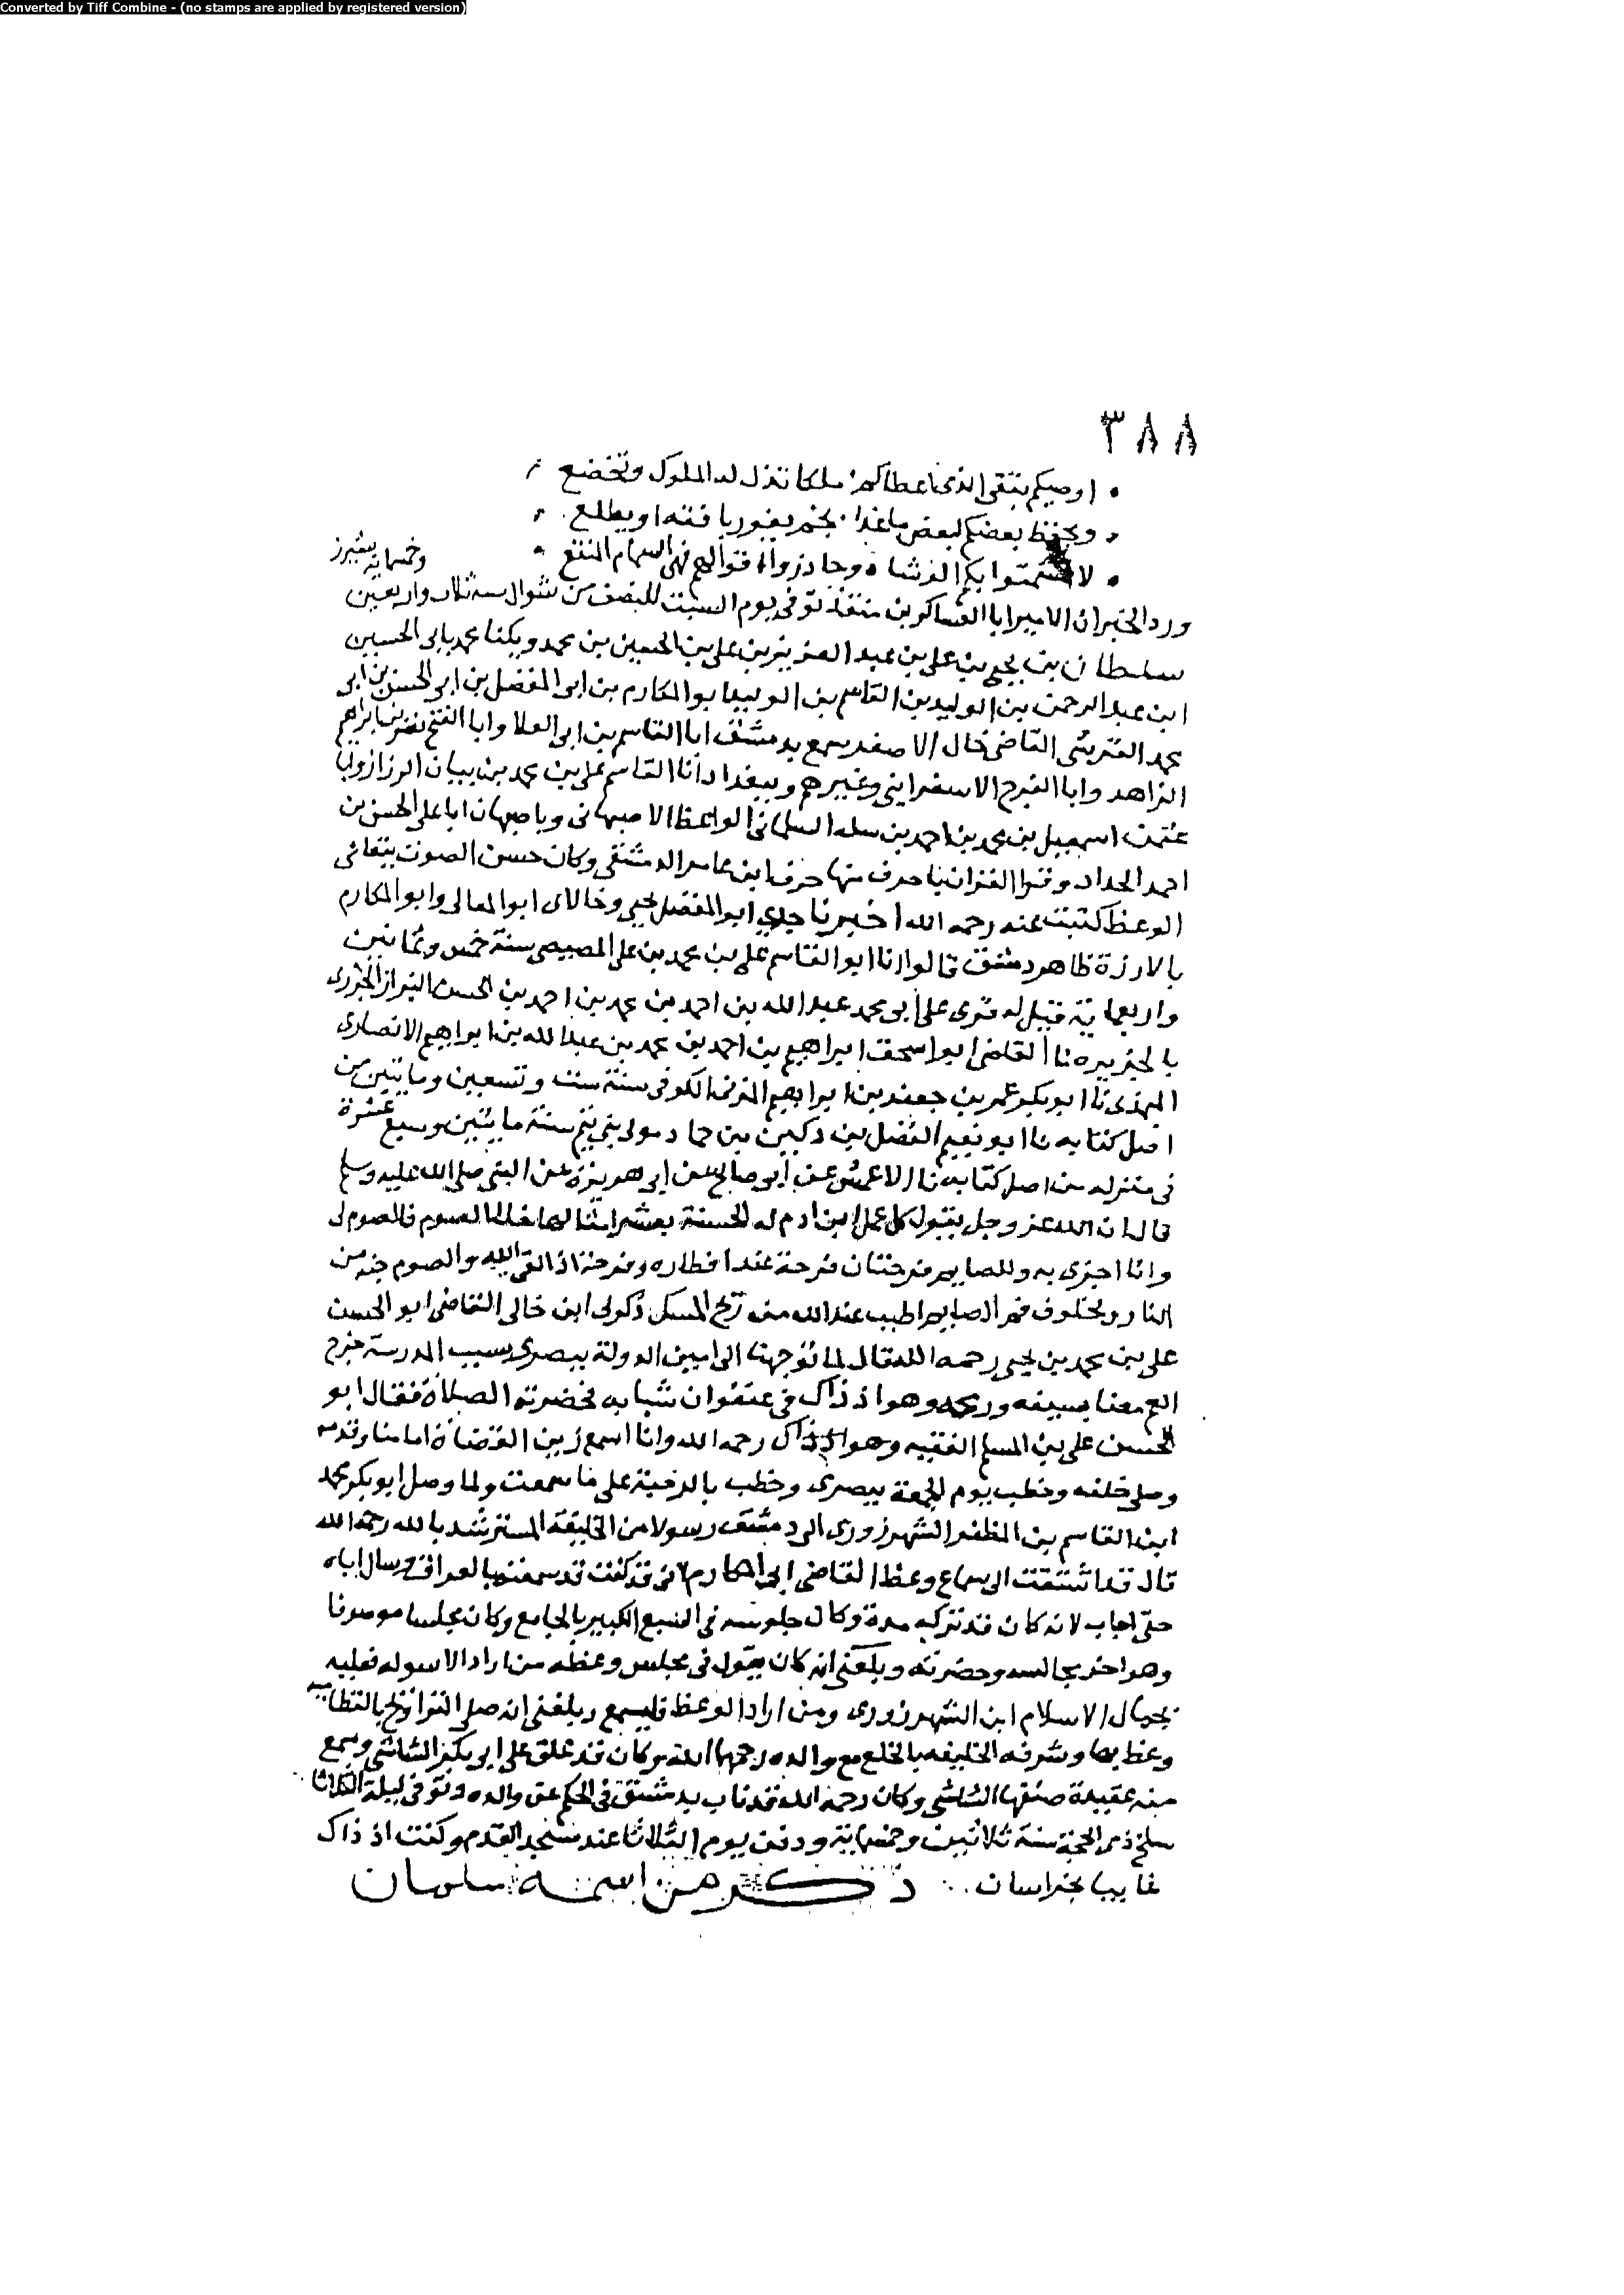 Converted by Tiff Combine - (no stamps are applied by registered version)
٣٨٨
اوصيكم بتقى الذى اعطاكم ملكا تذل له الملوك وتخضع
وبحفظ بعضكم لبعض ما غدا نجم يغور بافقه او يطلع
لا تشمتوا بكم الوشاه وحاذروا اقوالهم فهى السهام المنقع
وخمسمايه بشيزر
ورد الخبر ان الامير ابا العساكر بن منقذ توفى يوم السبت للنصف من شوال سنة ثلاث واربعين
سلطان بن يحيى بن على بن عبد العزيز بن على بن الحسين بن محمد ويكنا محمد بابى الحسين
ابن عبد الرحمن بن الوليد بن القاسم بن الوليد ابو المكارم بن ابى المفضل بن ابى الحسن بن ابى
محمد القرشى القاضى خال الاصغر سمع بدمشق ابا القاسم بن ابى العلا وابا الفتح نصر بن ابراهيم
الزاهد وابا الفرج الاسفراينى وغيرهم وببغداد ابا القاسم على بن محمد بن بيان الرزاز وابا
عثمن اسمعيل بن محمد بن احمد بن مله السلمانى الواعظ الاصبهانى وباصبهان ابا على الحسن بن
احمد الحداد وقرا القران باحرف منها حرف ابن عامر الدمشقى وكان حسن الصوت يتعانى
الوعظ كتبت عنه رحمه الله اخبرنا جدى ابو المفضل يحيى وخالاى ابو المعالى وابو المكارم
بالارزة ظاهر دمشق قالوا انا ابو القاسم على بن محمد بن على المصيصى سنة خمس وثمانين
واربعماية قيل له قرى على ابى محمد عبد الله بن احمد بن محمد بن احمد بن الحسن البزاز الجزرى
بالجزيره نا القاضى ابو اسحق ابراهيم بن احمد بن محمد بن عبد الله بن ابراهيم الانصارى
ابو بكر عمر بن جعفر بن ابراهيم المزنى الكوفى سنة ست وتسعين وماتين من
اصل كتابه نا ابو نعيم الفضل بن دكين بن حماد مولى بنى تيم سنة مايتين وسبع عشرة
فى منزله من اصل كتابه نا الاعمش عن ابى صالح عن ابى هريرة عن النبى صلى الله عليه وسلم
قال ان الله عز وجل يقول كل عمل ابن ادم له الحسنة بعشر امثالها خلا الصوم فالصوم لى
وانا اجزى به وللصايم فرحتان فرحة عند افطاره وفرحة اذا لقى الله والصوم جنه من
النار ولخلوف فم الصايم اطيب عند الله من ريح المسك ذكر لى ابن خالى القاضى ابو الحسن
على بن محمد بن يحيى رحمه الله قال لما توجهنا الى امين الدولة ببصرى بسبب المدرسة خرج
اخ معنا بسيفه ورمحه وهو اذ ذاك فى عنفوان شبابه فحضرت الصلاة فقال ابو
الحسن على بن المسلم الفقيه وهو اذ ذاك رحمه الله وانا اسمع زين القضاة امامنا وقدمه
وصلى خلفه وخطب يوم الجمعة ببصرى وخطب بالرحبة على ما سمعت ولما وصل ابو بكر محمد
ابن القاسم بن المظفر الشهرزورى الى دمشق رسولا من الخليفة المسترشد بالله رحمه الله
قال قد اشتقت الى سماع وعظ القاضى ابى المكارم قد كنت قد سمعته بالعراق وسال اباه
حتى اجاب لانه كان قد تركه مدة وكان جلوسه فى السبع الكبير بالجامع وكان مجلسا موصوفا
وهو اخر مجالسه وحضرته وبلغنى انه كان يقول فى مجلس وعظه من اراد الاسوله فعليه
بجمال الاسلام ابن الشهرزورى ومن اراد الوعظ فليسمع وبلغنى انه صلى التراويح بالنظاميه
وعظ بها وشرفه الخليفه بالخلع مع والده رحمهما الله وكان قد علق على ابى بكر الشاشى وسمع
منه عقيدة صنفها الشاشى وكان رحمه الله قد ناب بدمشق فى الحكم عن والده وتوفى ليلة الثلاثا
سلخ ذى الحجة سنة ثلاثين وخمسماية ودفن يوم الثلاثا عند مسجد القدم وكنت اذ ذاك
غايبا بخراسان ذكر من اسمه سلمان